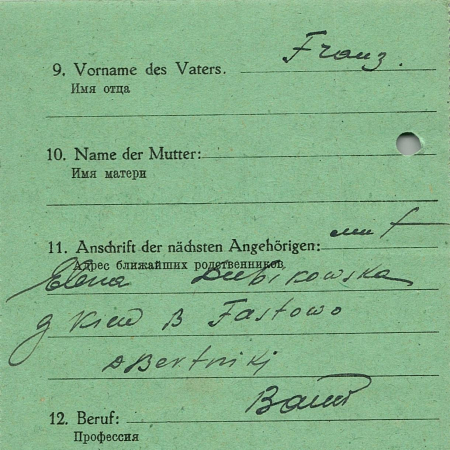 Franz.
9. Vorname des Vaters.
Имя отца
10. Name der Mutter:
Имя матери
11. Anschrift der nächsten Angehörigen:
Адрес ближайших родственников
Elena Dubikowska
g Kiew B Fastowo
12. Beruf:
Профессия